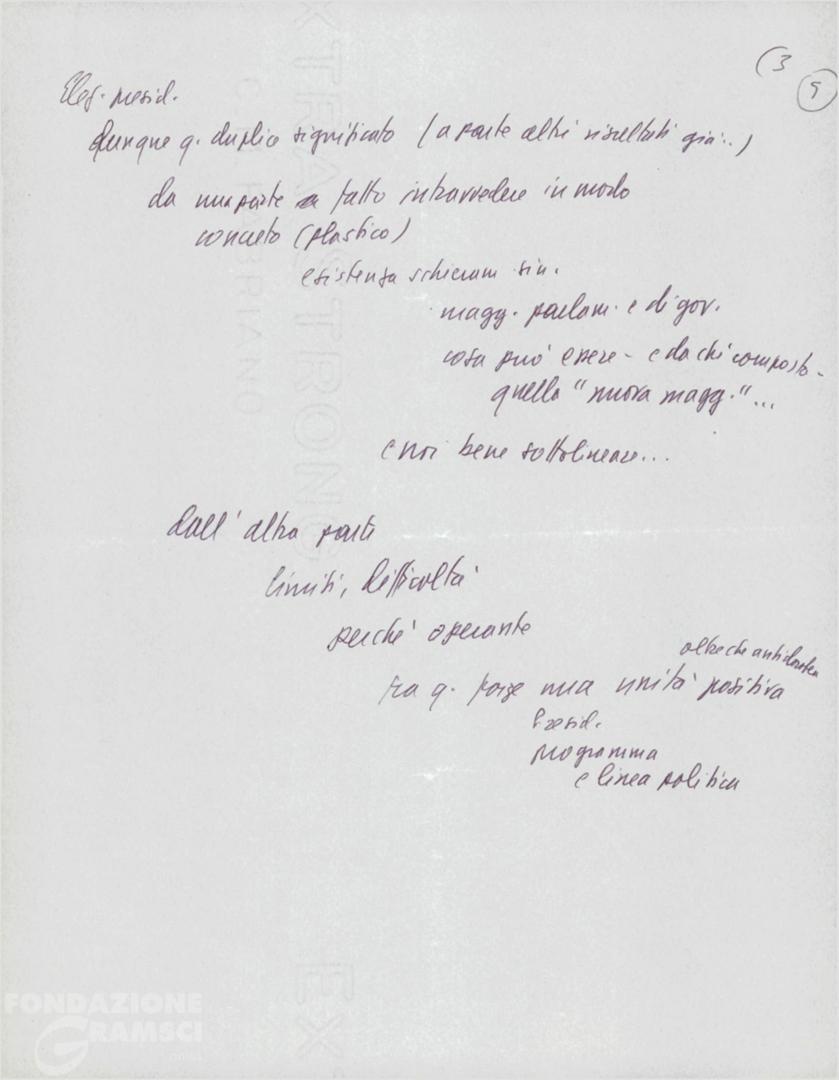 (3
5
Elez. presid.
dunque q. duplice significato (a parte altri risultati già..)
da una parte a fatto intravvedere in modo
concreto (plastico)
esistenza schieram. sin.
magg. parlam. e di gov.
cosa può essere - e da chi composto -
quella "nuova magg."...
e noi bene sottolineare...
dall'altra parte
limiti, difficoltà
perché operante
oltre che
tra q. forze una unità positiva
Presid.
programma
e linea politica
EXTRA STRONG
C. FABRIANO
EX
FONDAZIONE
GRAMSCI
onlus